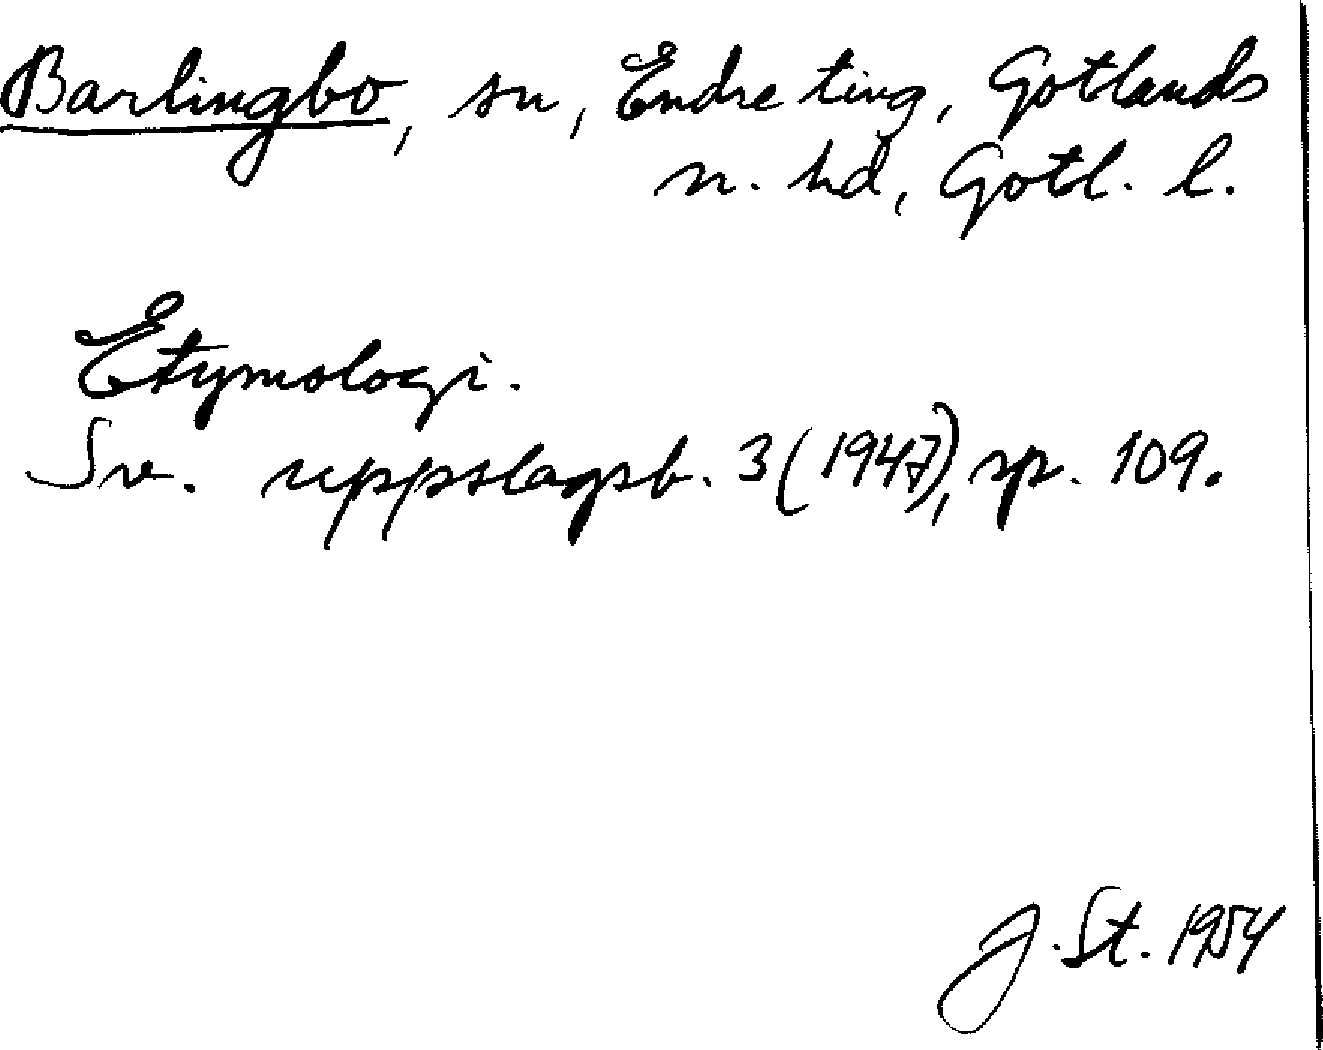 Barlingbo, sn, Endre ting, Gotlands
n. hd, Gotl. l.
Etymologi.
Sv. uppslagsb. 3 (1947), sp. 109.
J. St. 1954